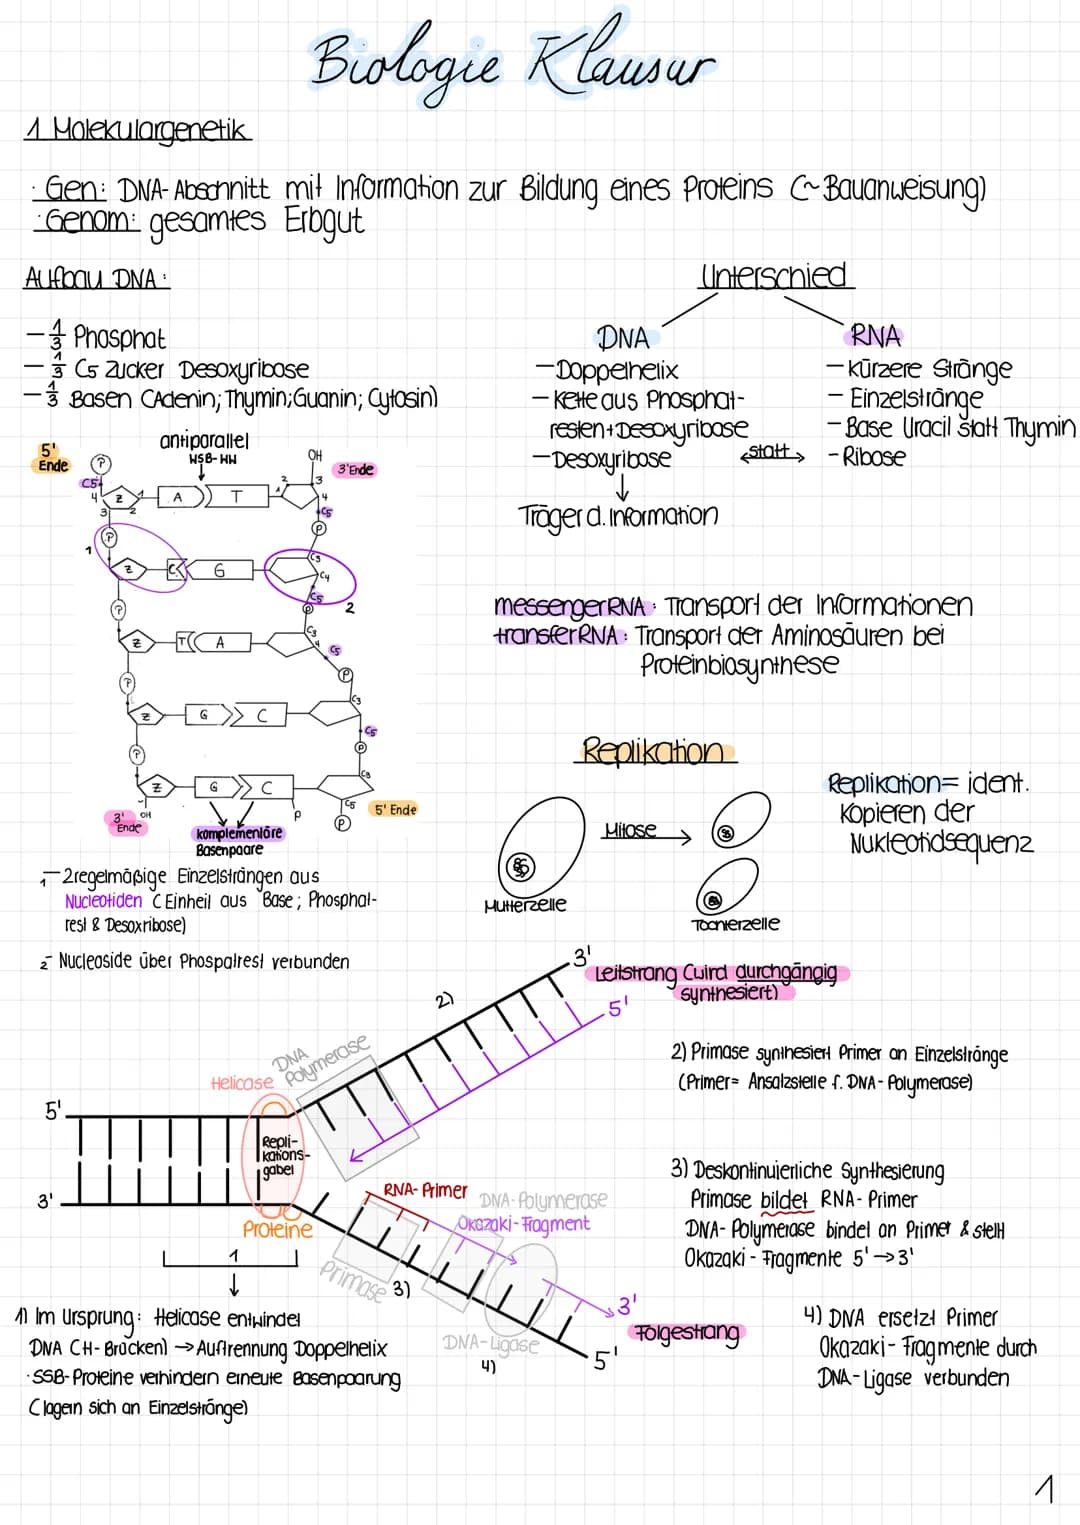 Biologie Klausur
1 Molekulargenetik
· Gen: DNA-Abschnitt mit Information zur Bildung eines Proteins (~Bauanweisung)
· Genom: gesamtes Erbgut
Aufbau DNA:
- 1/3 Phosphat
- 1/3 C5 Zucker Desoxyribose
- 1/3 Basen (Adenin; Thymin; Guanin; Cytosin)
Unterschied
DNA
- Doppelhelix
- Kette aus Phosphat-
resten + Desoxyribose
- Desoxyribose
Träger d. Information
statt
RNA
- kürzere Stränge
- Einzelstränge
- Base Uracil statt Thymin
- Ribose
antiparallel
WSB-WW
5'
Ende
OH
3'Ende
P
C5
4
Z
1
A
T
2
1
3
4
3
2
C5
P
1
P
Z
C
G
C3
C4
C5
P
2
P
Z
T
A
C3
4
C5
P
P
Z
G
C
C3
C5
P
P
Z
G
C
C3
C5
P
P
5' Ende
3'
Ende
OH
komplementäre
Basenpaare
1 - 2 regelmäßige Einzelsträngen aus
Nucleotiden (Einheit aus Base; Phosphat-
rest & Desoxribose)
2 - Nucleoside über Phospatrest verbunden
messengerRNA: Transport der Informationen
transferRNA: Transport der Aminosäuren bei
Proteinbiosynthese
Replikation
Replikation= ident.
Kopieren der
Nukleotidsequenz
Mitose
Mutterzelle
Tochterzelle
3'
Leitstrang (wird durchgängig
synthesiert)
5'
2)
DNA
Polymerase
Helicase
5'
3'
Repli-
kations-
gabel
Proteine
1
RNA-Primer
DNA-Polymerase
Okazaki-Fragment
Primase 3)
DNA-Ligase
4)
3'
Folgestrang
5'
2) Primase synthesiert Primer an Einzelstränge
(Primer= Ansatzstelle f. DNA-Polymerase)
3) Deskontinuierliche Synthesierung
Primase bildet RNA-Primer
DNA-Polymerase bindet an Primer & stellt
Okazaki-Fragmente 5'→3'
4) DNA ersetzt Primer
Okazaki-Fragmente durch
DNA-Ligase verbunden
1) Im Ursprung: Helicase entwindet
DNA (H-Brücken) → Auftrennung Doppelhelix
·SSB-Proteine verhindern erneute Basenpaarung
(lagern sich an Einzelstränge)
1